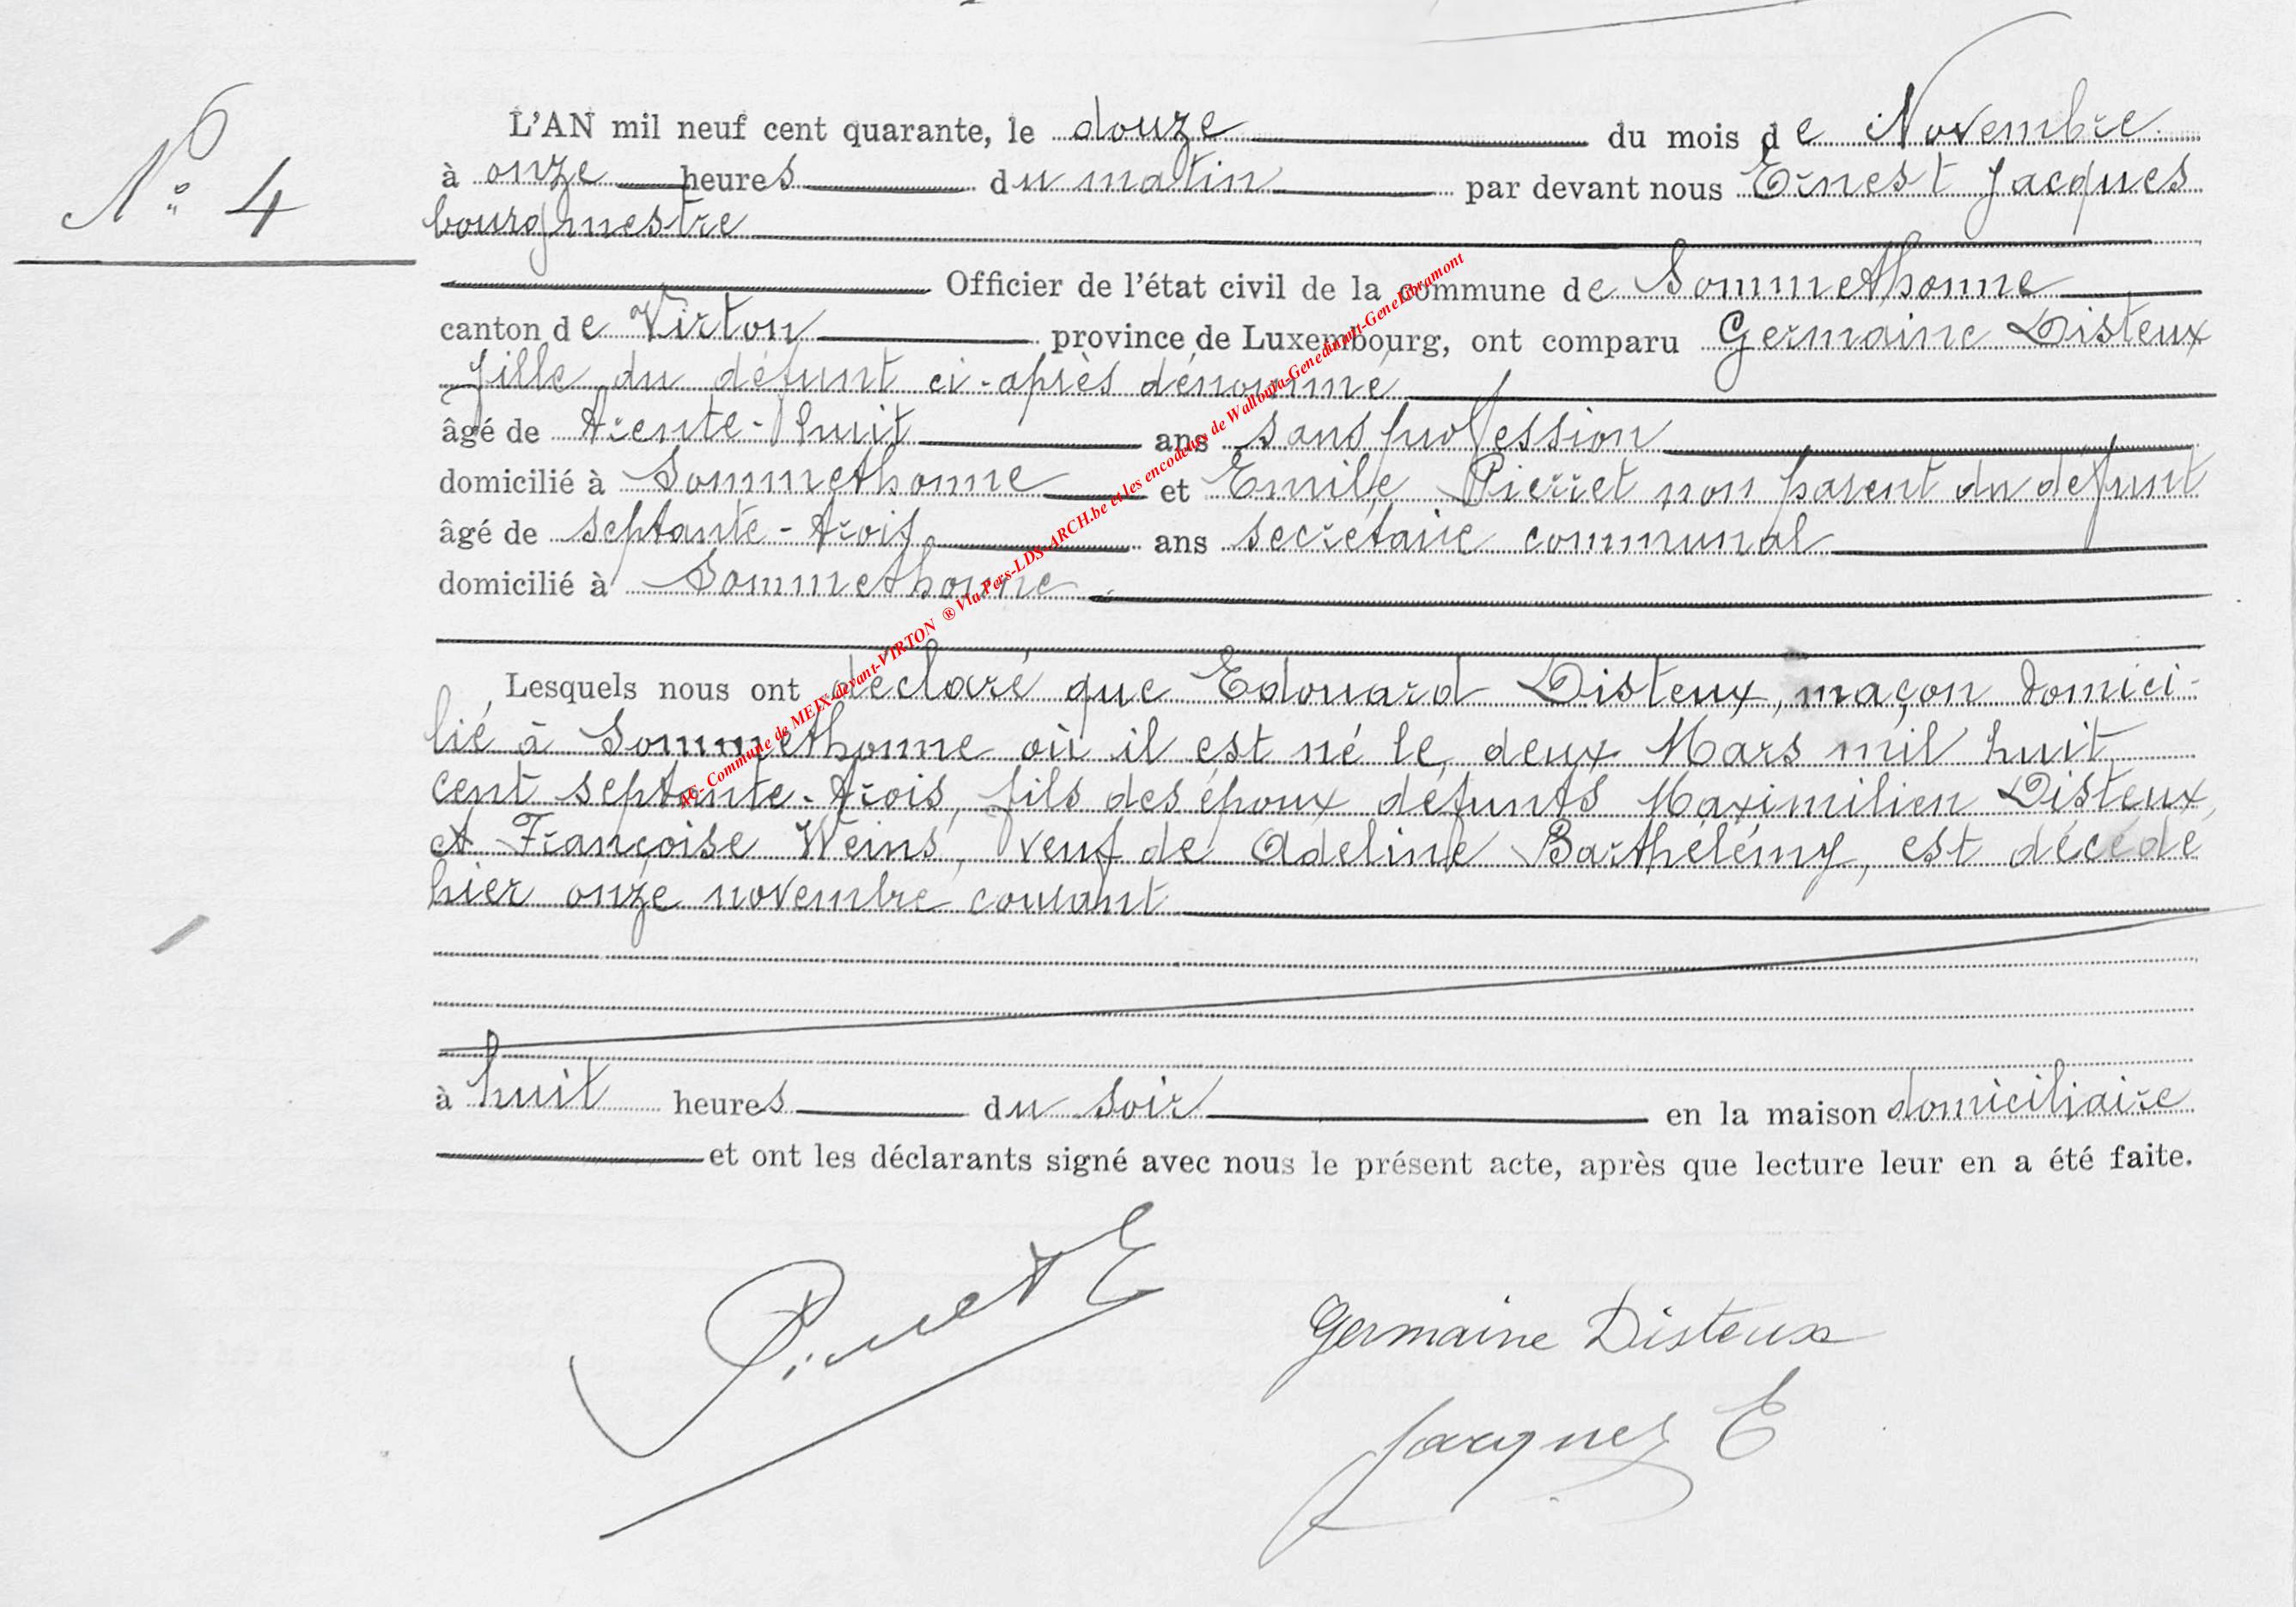 N° 4
L'AN mil neuf cent quarante, le douze du mois de Novembre
à onze heures du matin par devant nous Ernest Jacques
bourgmestre
Officier de l'état civil de la commune de Sommethonne
canton de Virton province de Luxembourg, ont comparu Germaine Disteux
fille du défunt ci-après dénommé
âgé de trente-huit ans sans profession
domicilié à Sommethonne et Emile Pierret non parent du défunt
âgé de septante-trois ans secrétaire communal
domicilié à Sommethonne
Lesquels nous ont déclaré que Edouard Disteux, maçon domici-
lié à Sommethonne où il est né le deux Mars mil huit
cent septante-trois, fils des époux défunts Maximilien Disteux,
et Françoise Weins, veuf de Adeline Barthélémy, est décédé
hier onze novembre courant
à huit heures du soir en la maison domiciliaire
et ont les déclarants signé avec nous le présent acte, après que lecture leur en a été faite.
Pierret E
Germaine Disteux
Jacques E
AC- Commune de MEIX-devant-VIRTON ® Via Pers-LDS-ARCH.be et les encodeurs de Wallonia-Genedinant-GeneLibramont